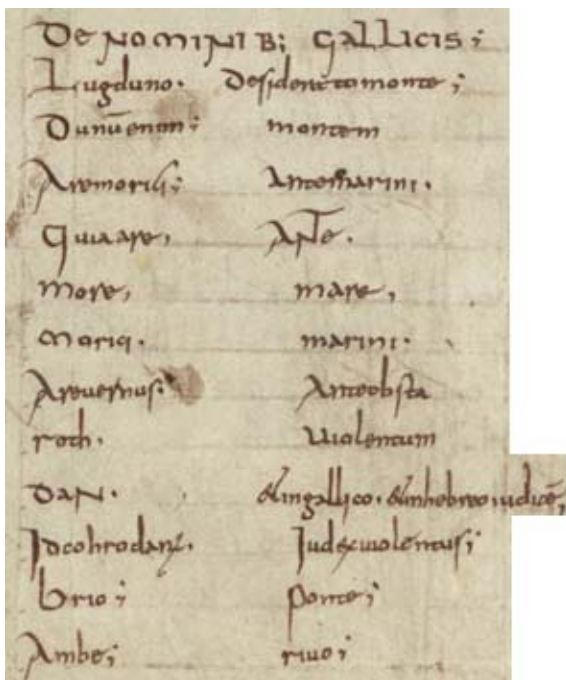 DE NOMINIB; GALLICIS;
Lugduno. Desiderato monte;
Dunū enim; montem
Aremorici; Antemarini.
Quia are, Ante.
more, mare,
Morici. marini.
Arevernus. Ante obsta
roth. Violentum
DAN. et in gallico. et in hebreo iudicē,
Ideo hrodanus. Iudex violentus;
brio; ponte;
Ambe; rivo;